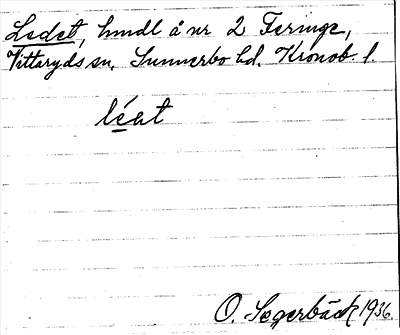 Ledet, hmdl å nr 2 Feringe,
Vittaryds sn. Sunnerbo hd. Kronob. l.
léat
O. Segerbäck 1936.